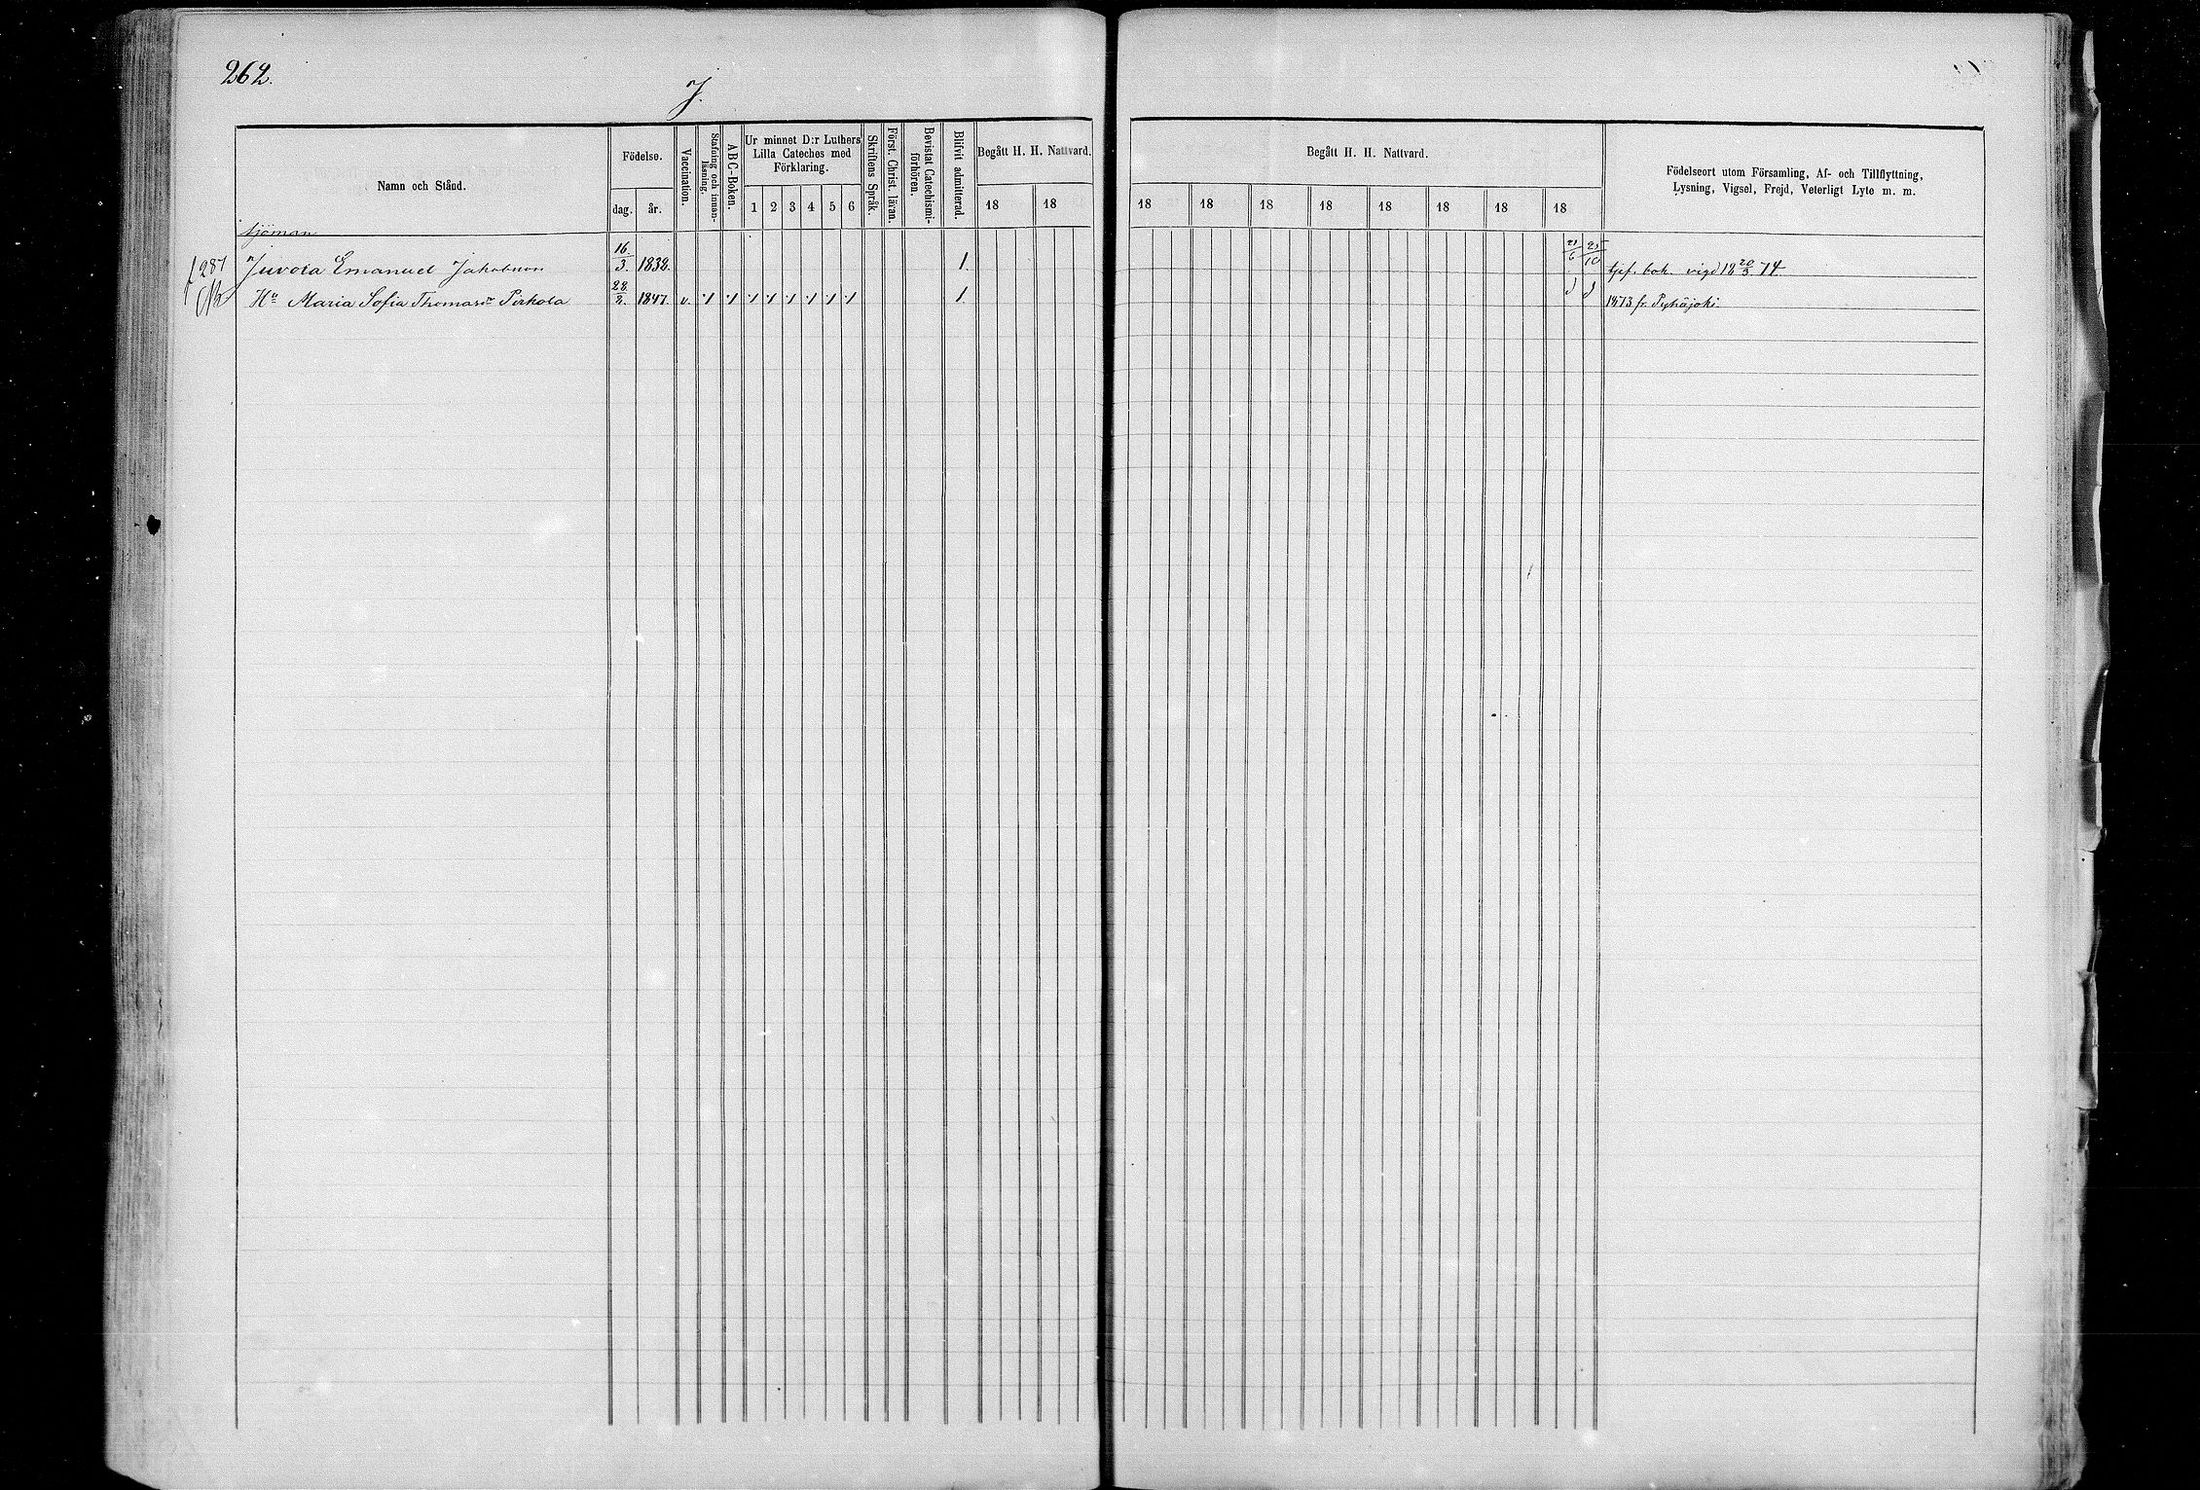 262.
J.
Namn och Stånd.
Födelse.
dag. år.
Vaccination.
Stafning och innan-
läsning.
ABC-Boken.
Ur minnet D:r Luthers
Lilla Cateches med
Förklaring.
1 2 3 4 5 6
Skriftens Språk.
Först. Christ. läran.
Bevistat Catechismi-
förhören.
Blifvit admitterad.
Begått H. H. Nattvard.
18 18
Begått H. H. Nattvard.
18 18 18 18 18 18 18 18
Födelseort utom Församling, Af- och Tillflyttning,
Lysning, Vigsel, Frejd, Veterligt Lyte m. m.
Sjöman
287 Emanuel Jakobsson 16/3. 1838. 1. 21/6 25/10 vigd 18 20/3 74
Hu Maria Sofia Thomasdr Pirkola 28/8. 1847. v. 1. 1873 fr. Pyhäjoki.